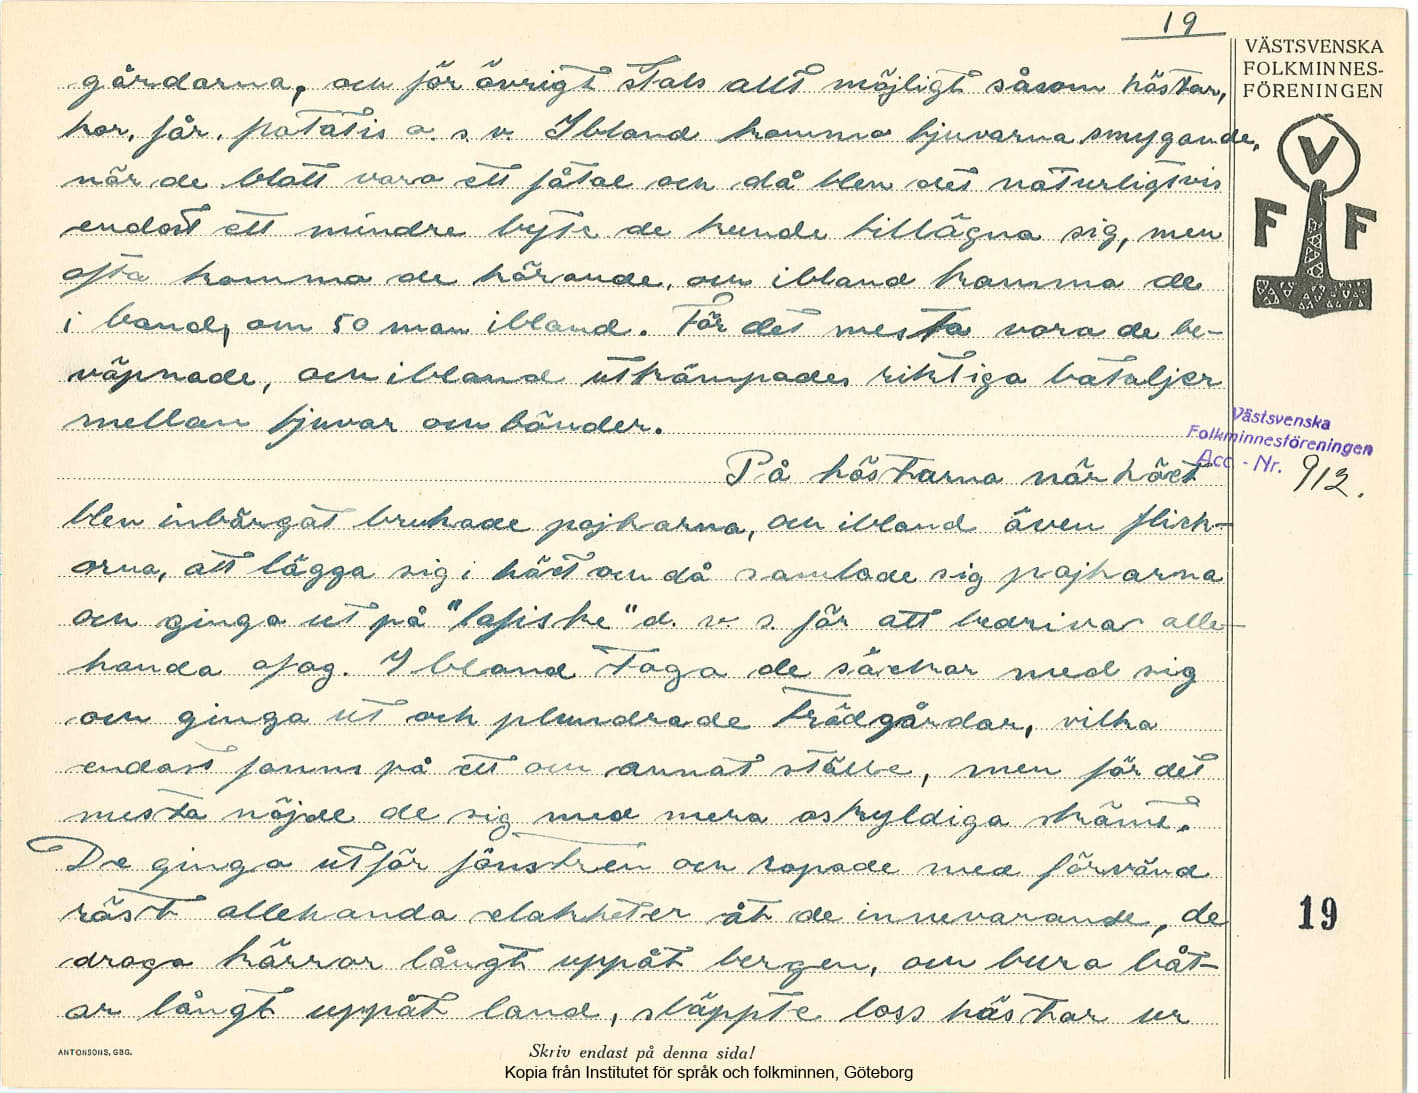 19
VÄSTSVENSKA
FOLKMINNES-
FÖRENINGEN
gårdarna, och för övrigt stals allt möjligt såsom hästar,
kor, får, potatis o. s. v. Ibland kommo tjuvarna smygande,
när de blott voro ett fåtal och då blev det naturligtvis
endast ett mindre byte de kunde tillägna sig, men
ofta kommo de körande, och ibland kommo de
i band, om 50 man ibland. För det mesta voro de be-
väpnade, och ibland utkämpades riktiga bataljer
mellan tjuvar och bönder.
På höstarna när höet
blev inbärgat brukade pojkarna, och ibland även flick-
orna, att lägga sig i höet och då samlade sig pojkarna
och gingo ut på "lofiske" d. v. s. för att bedriva alle-
handa ofog. Ibland togo de säckar med sig
och gingo ut och plundrade trädgårdar, vilka
endast fanns på ett och annat ställe, men för det
mesta nöjde de sig med mera oskyldiga skämt.
De gingo utför fönstren och ropade med förvänd
röst allehanda elakheter åt de innevarande, de
drogo kärror långt uppåt bergen, och buro båt-
ar långt uppåt land, släppte loss hästar ur
V
F F
Västsvenska
Folkminnesföreningen
Acc. - Nr. 912.
19
ANTONSONS, GBG.
Skriv endast på denna sida!
Kopia från Institutet för språk och folkminnen, Göteborg